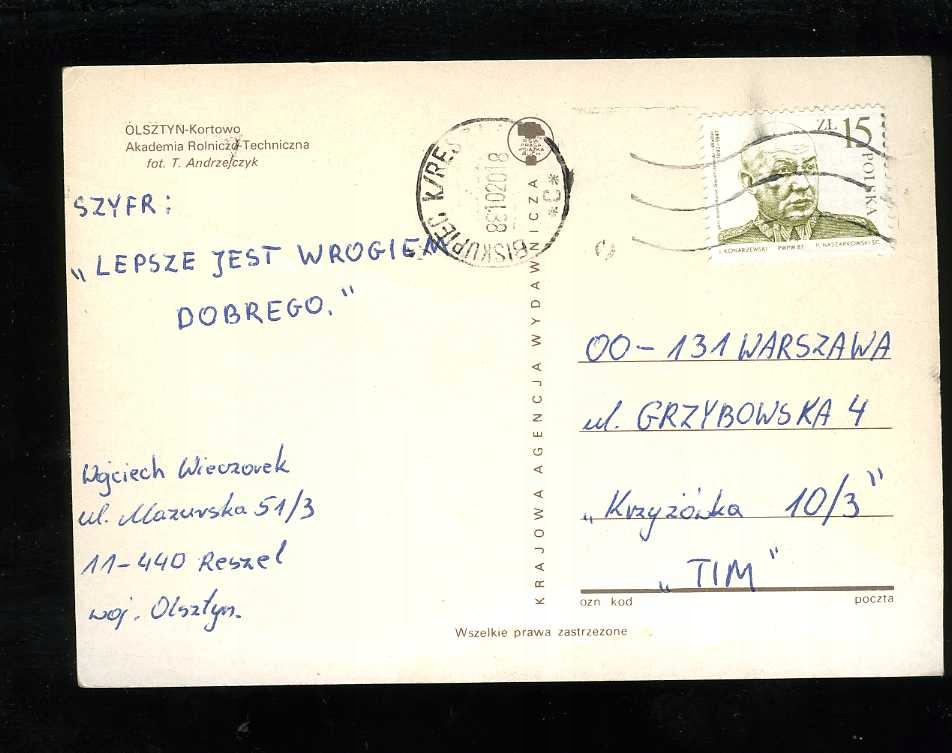 OLSZTYN-Kortowo
Akademia Rolniczo-Techniczna
fot. T. Andrzejczyk
SZYFR:
„LEPSZE JEST WROGIEM
DOBREGO."
Wojciech Wieczorek
ul. Mazurska 51/3
11-440 Reszel
woj. Olsztyn.
BISKUPIEC K/RES
*C*
KRAJOWA AGENCJA WYDAWNICZA
ZŁ 15
POLSKA
PWPW 87
00-131 WARSZAWA
ul. GRZYBOWSKA 4
„Krzyżówka 10/3"
„TIM"
ozn kod poczta
Wszelkie prawa zastrzeżone